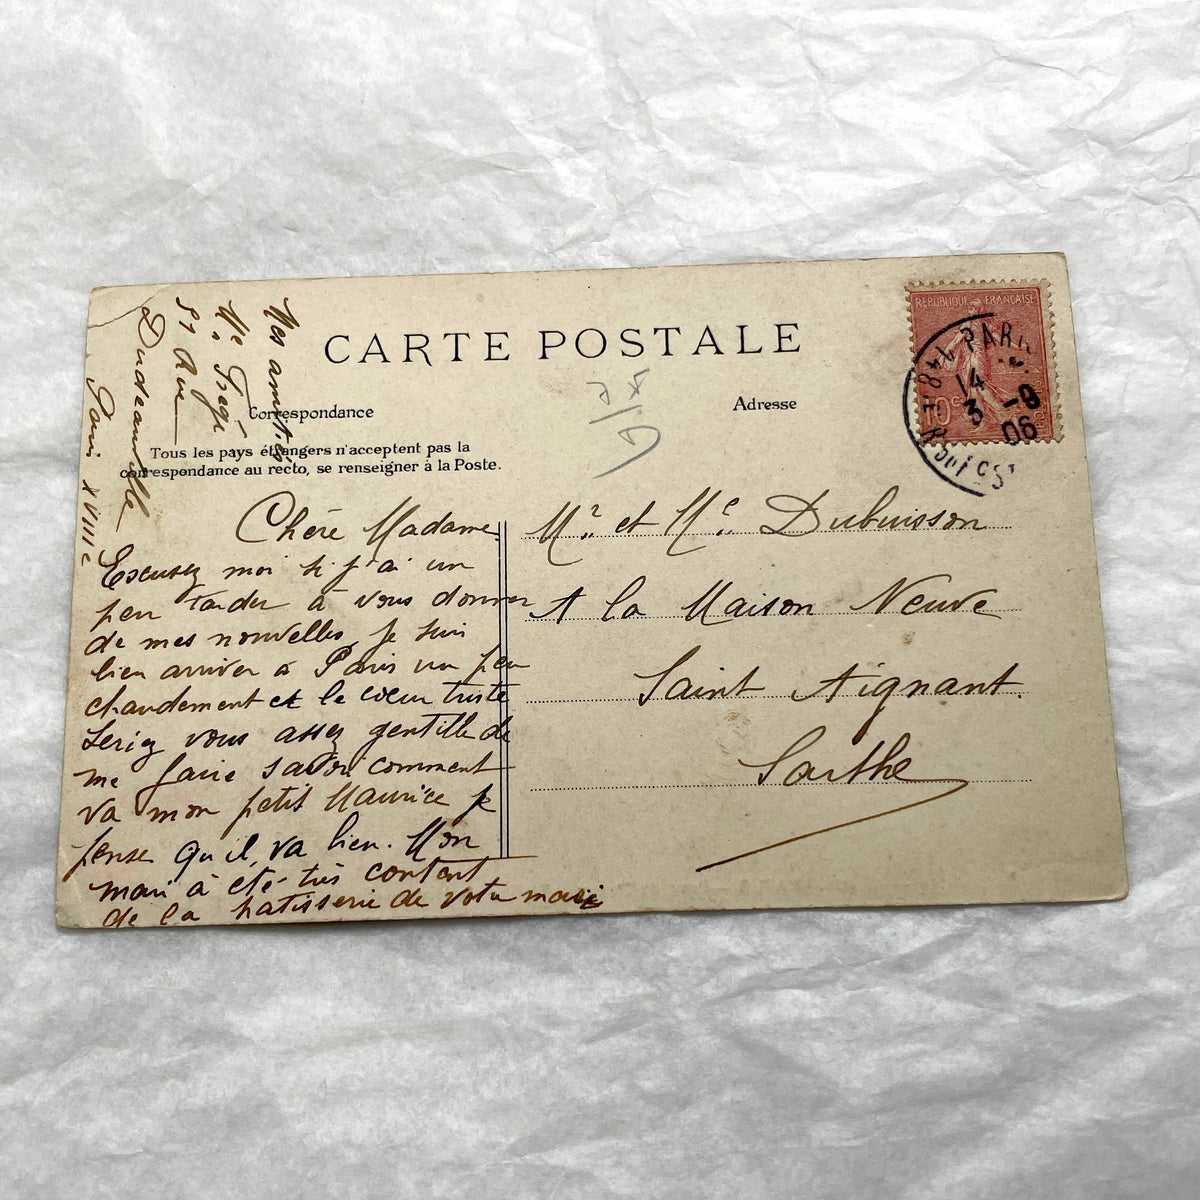 CARTE POSTALE
Correspondance
Adresse
Tous les pays étrangers n'acceptent pas la
correspondance au recto, se renseigner à la Poste.
RÉPUBLIQUE FRANÇAISE
10c
PARIS
14
3 -9
06
Chère Madame
Excusez moi si j'ai un
peu tarder à vous donner
de mes nouvelles, je suis
bien arriver à Paris un peu
chaudement et le cœur triste
Seriez vous assez gentille de
me faire savoir comment
va mon petit Maurice je
pense qu'il va bien. Mon
mari à été très content
de la patisserie de votre mari
Mes amitiés
Me
51 Rue
Dudeauville
Paris XVIIIe
Mr. et Me. Dubuisson
A la Maison Neuve
Saint Aignant.
Sarthe